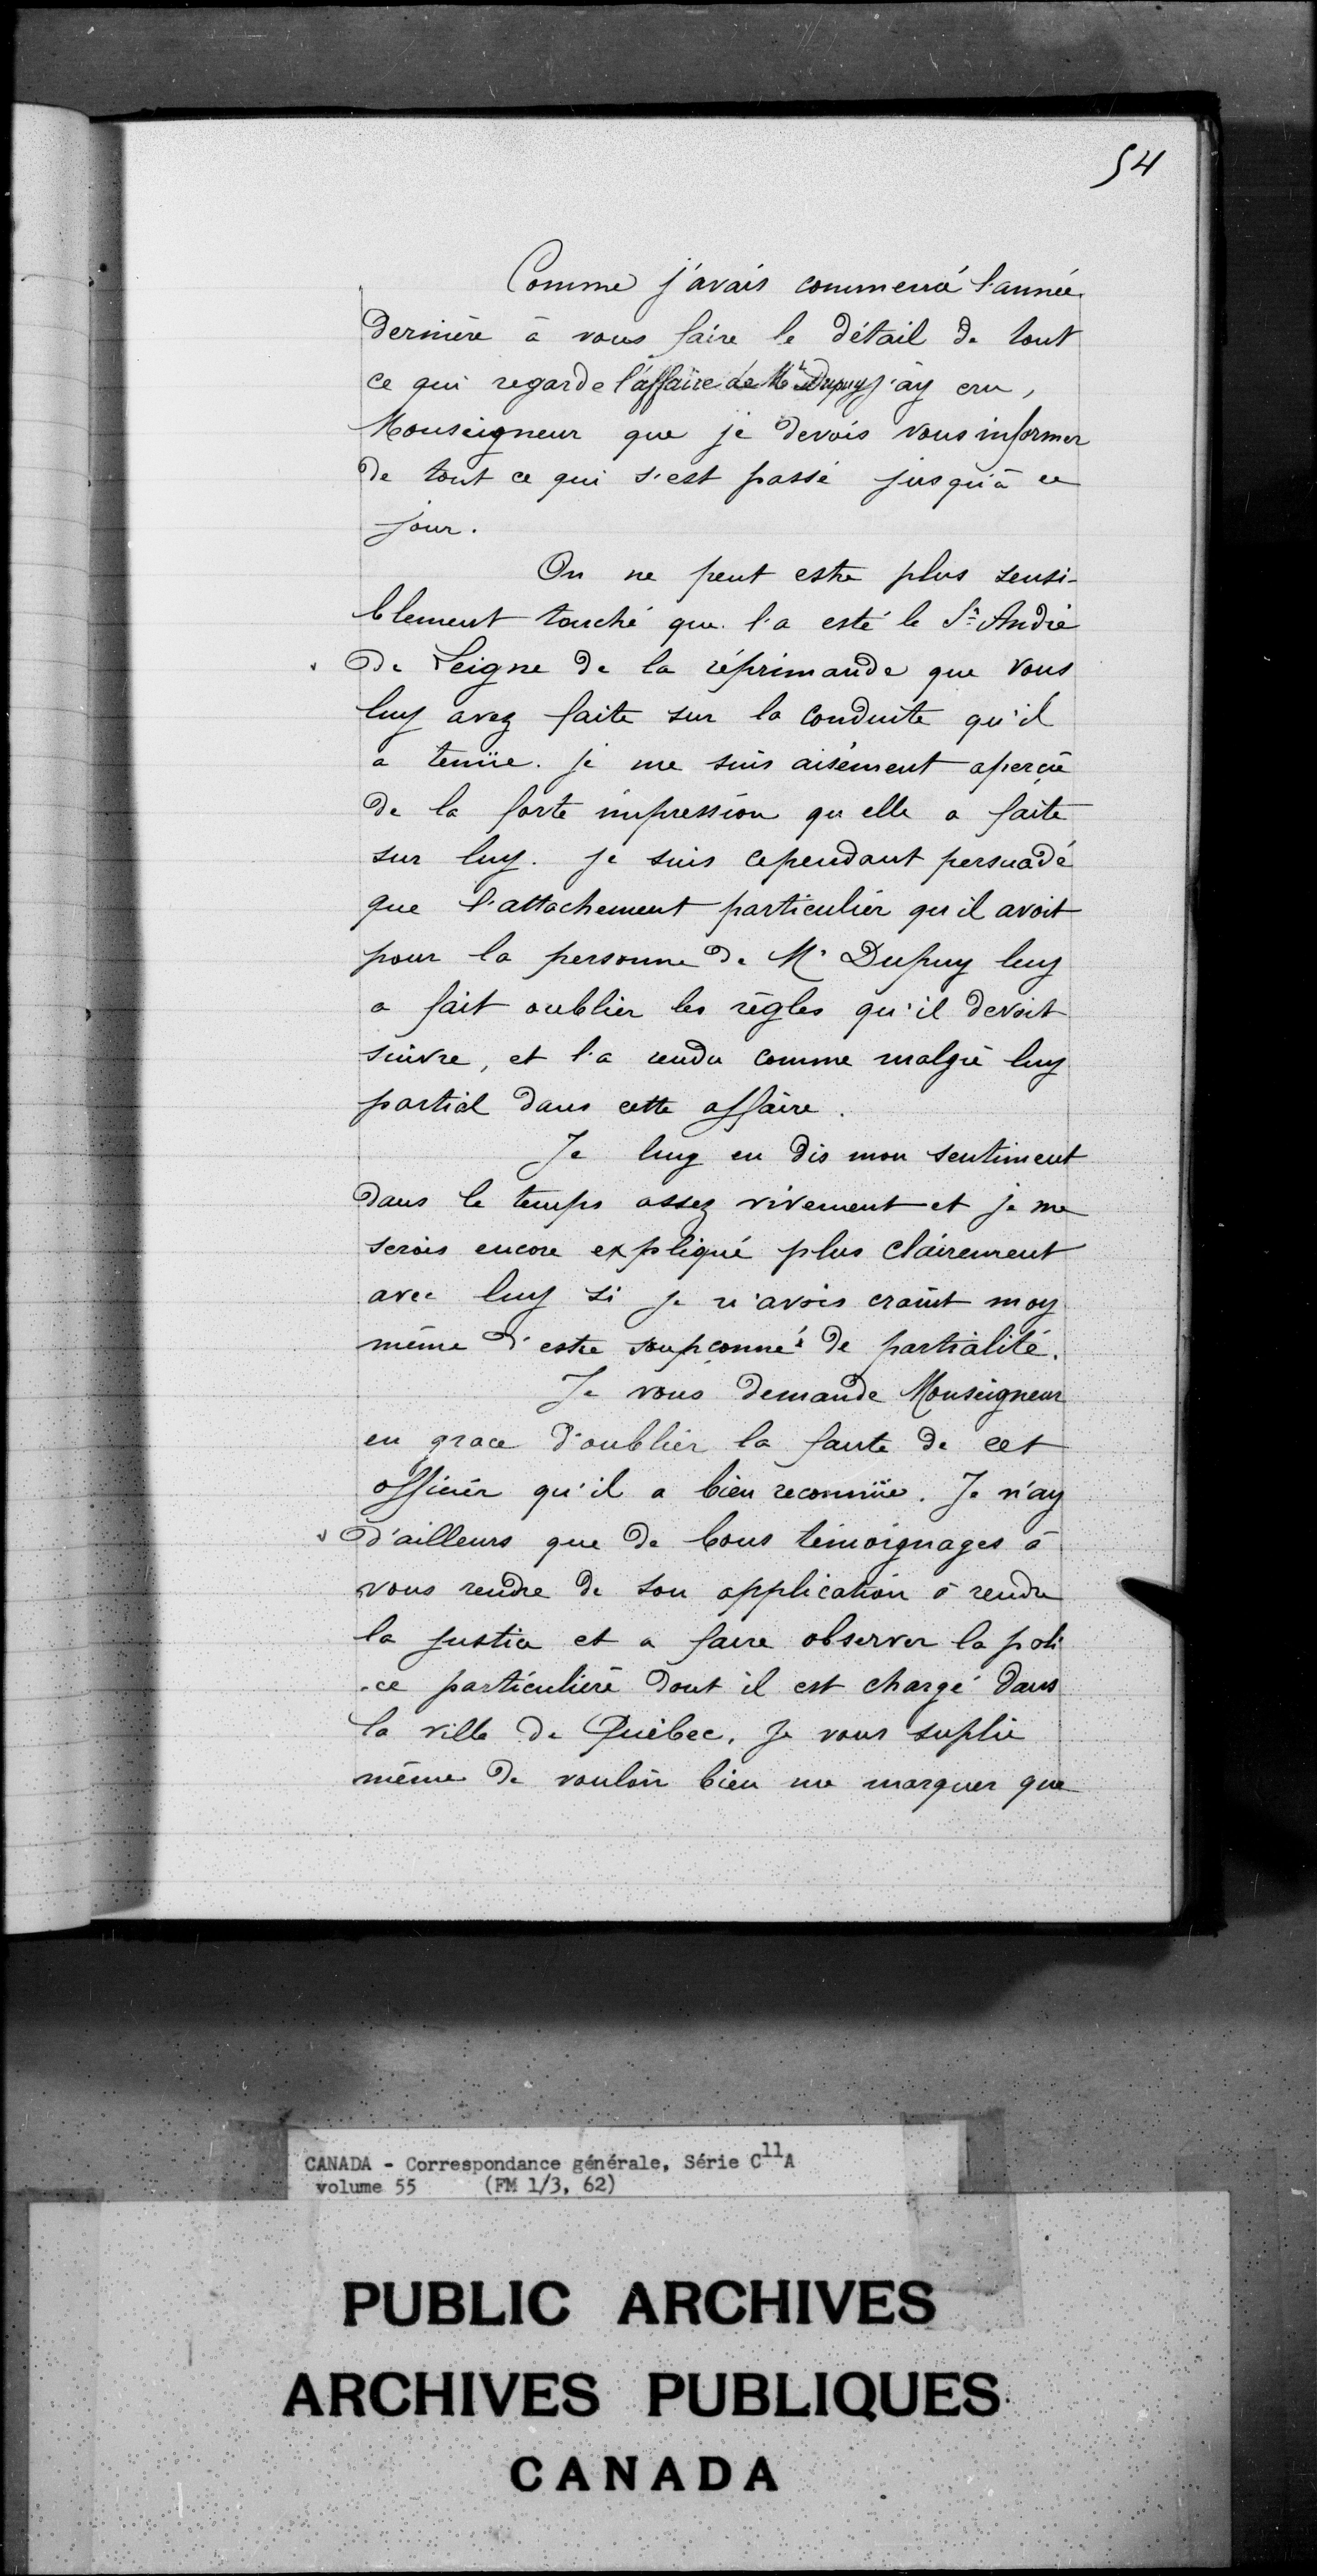 54
Comme j'avais commencé l'année
dernière à vous faire le détail de tout
ce qui regarde l'affaire de Mr Dupuy j'ay cru,
Monseigneur que je devois vous informer
de tout ce qui s'est passé jusqu'à ce
jour.
On ne peut estre plus sensi-
blement touché que l'a esté le Sr André
De Leigne de la réprimande que vous
luy avez faite sur la conduite qu'il
a tenüe. je me suis aisément aperçû
de la forte impression qu'elle a faite
sur luy. je suis cependant persuadé
que l'attachement particulier qu'il avoit
pour la personne de Mr Dupuy luy
a fait oublier les règles qu'il devoit
suivre, et l'a rendu comme malgré luy
partial dans cette affaire.
Je luy en dis mon sentiment
dans le temps assez vivement et je me
serois encore expliqué plus clairement
avec luy si je n'avois craint moy
même d'estre soupçonné de partialité.
Je vous demande Monseigneur
en grace d'oublier la faute de cet
officier qu'il a bien reconnüe. Je n'ay
d'ailleurs que de bons témoignages à
vous rendre de son application à rendre
la justice et a faire observer la poli
-ce particulière dont il est chargé dans
la ville de Québec. Je vous suplie
même de vouloir bien me marquer que
CANADA - Correspondance générale, Série C11A
volume 55 (FM 1/3, 62)
PUBLIC ARCHIVES
ARCHIVES PUBLIQUES
CANADA